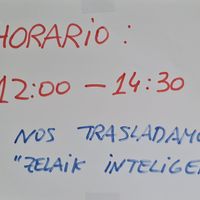 HORARIO:
12:00 - 14:30
NOS TRASLADAMO
"ZELAIK INTELIGE